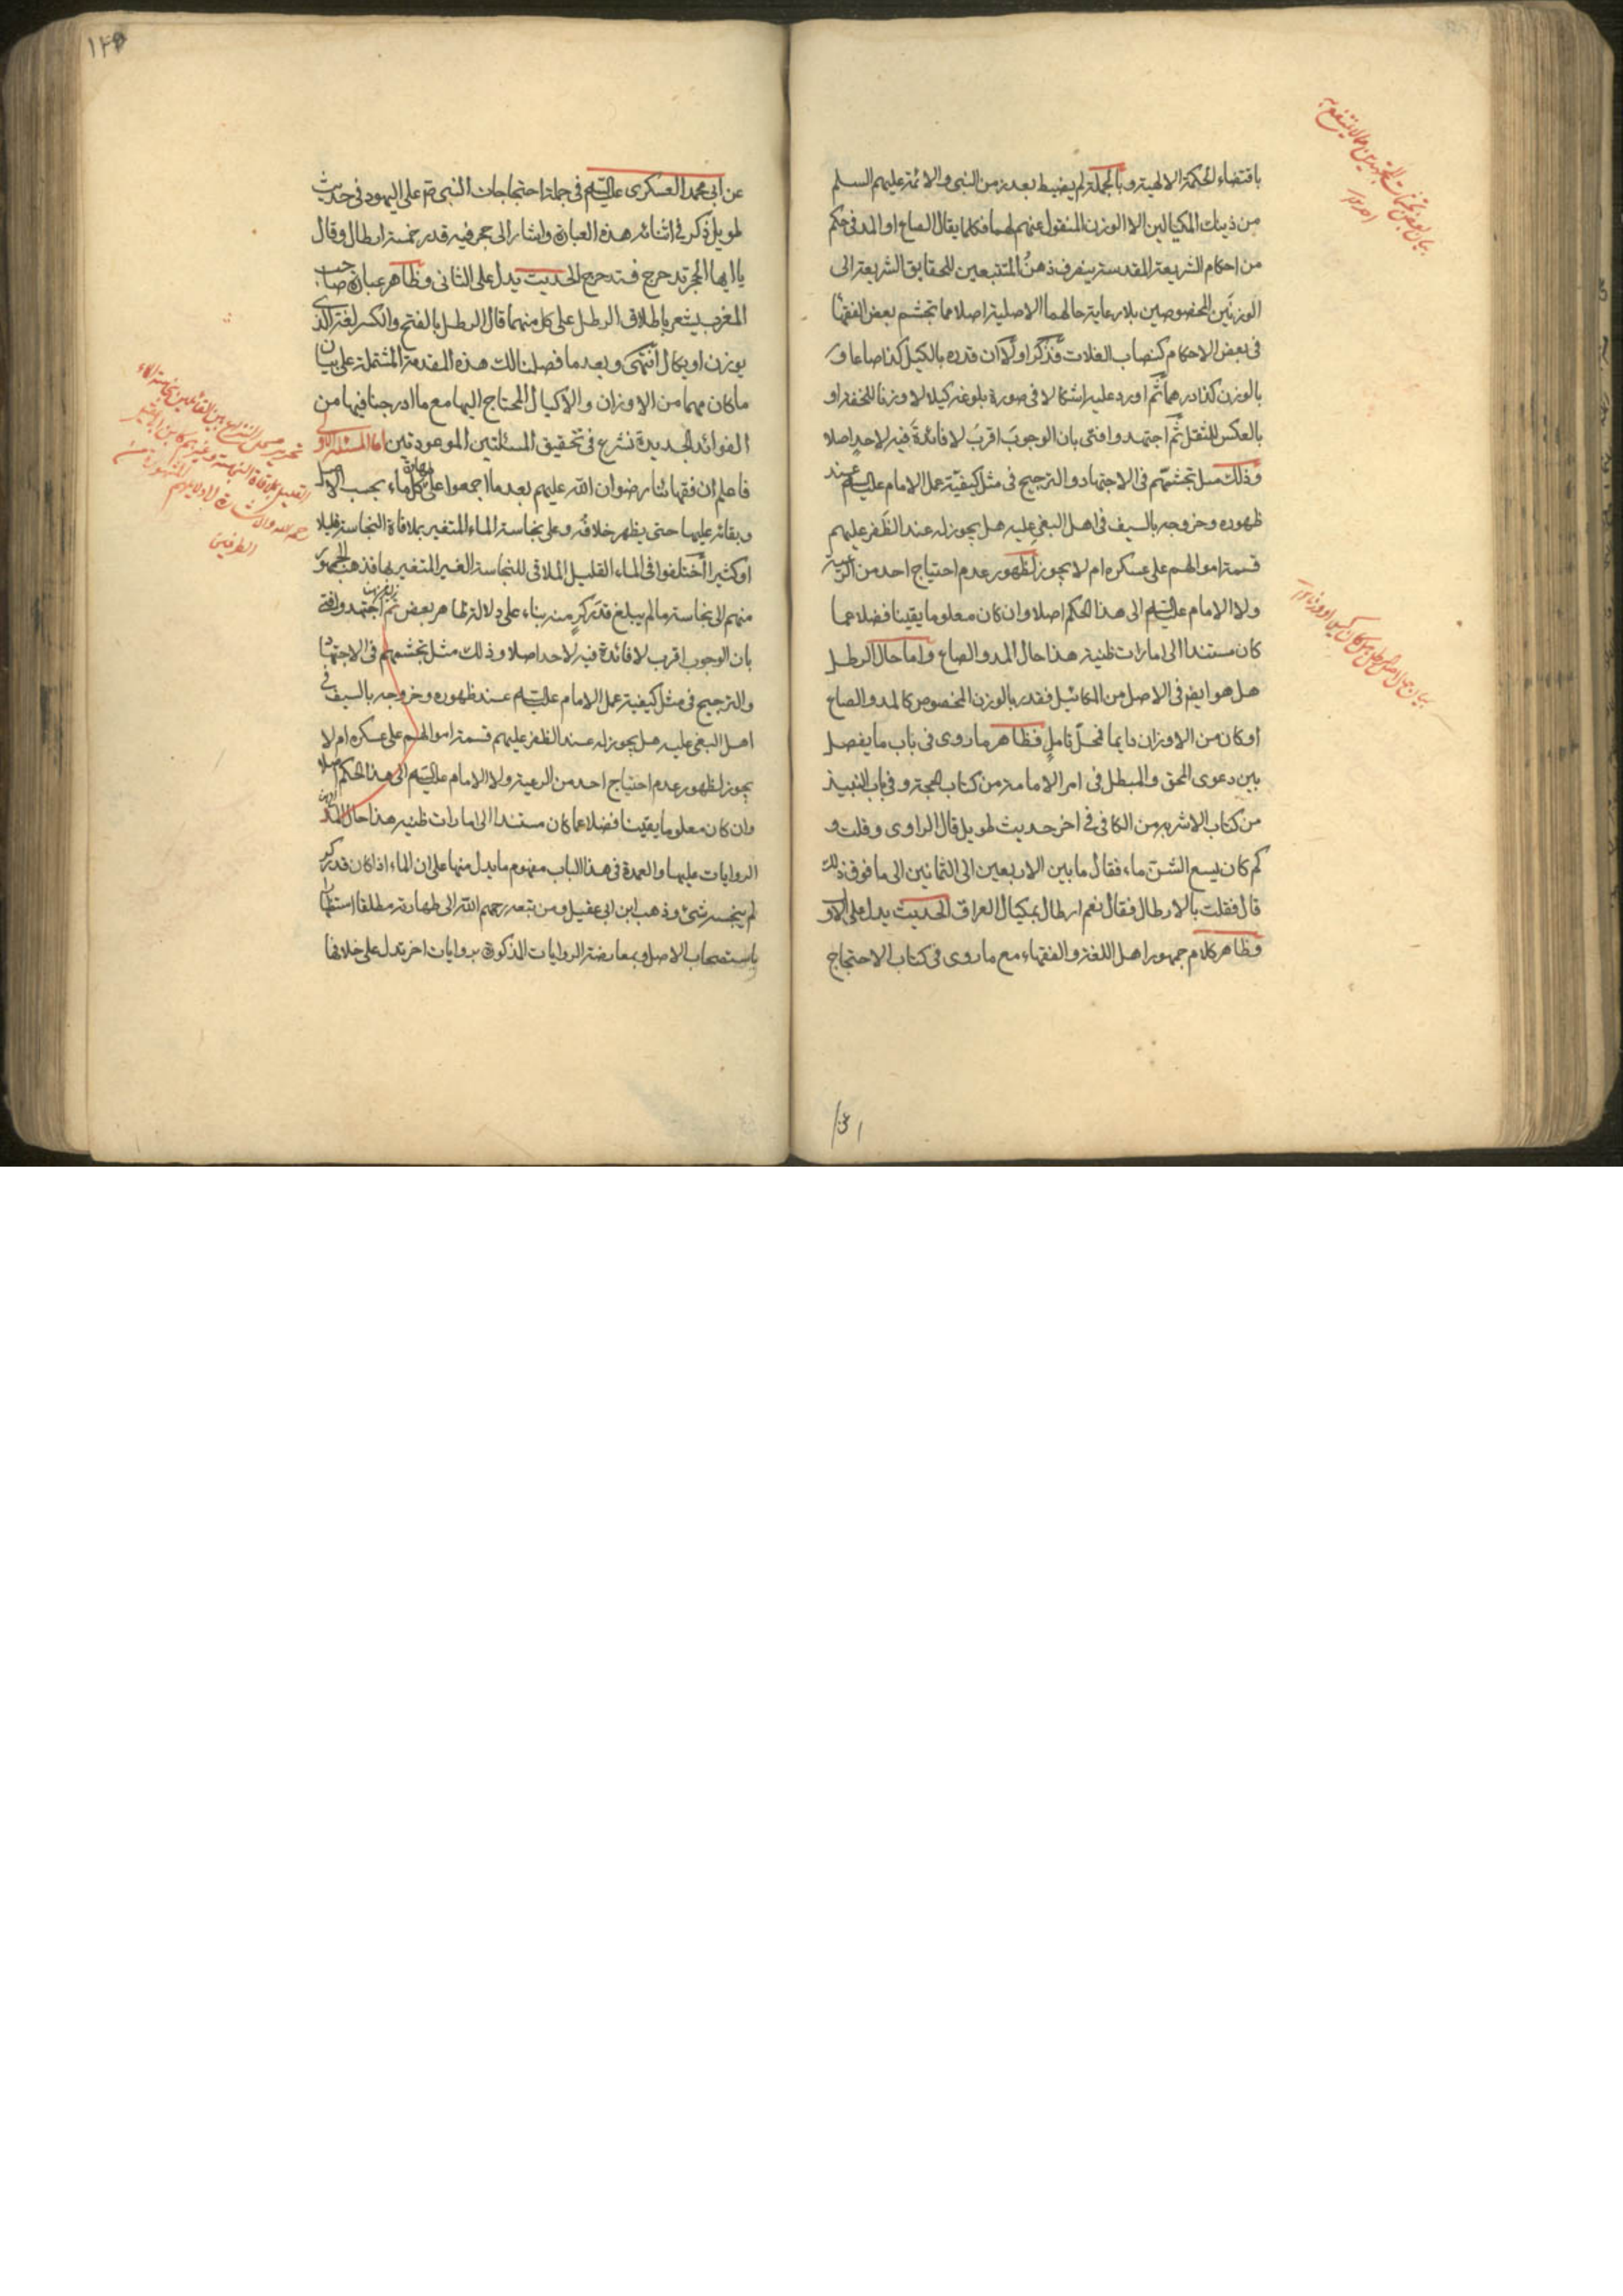 باقتضاء الحكمة الالهية وبالجملة لم يضبط بعد زمن النبي والائمة عليهم السلم
من ذينك المكيالين الا الوزن المنقول عنهم لهما فكلما يقال الصاع او المد في حكم
من احكام الشريعة المقدسة ينصرف ذهن المتتبعين للحقايق الشريعة الى
الوزنين المخصوصين بلا رعاية حالهما الاصلية اصلا مما تجشم بعض الفقها
في بعض الاحكام كنصاب الغلات فذكر اولا ان قدره بالكيل كذا صاعا و
بالوزن كذا درهما ثم اورد عليه اشكالا في صورة بلوغه كيلا لا وزنا للخفة او
بالعكس للثقل ثم اجتهد وافتى بان الوجوب اقرب لا فائدة فيه لاحد اصلا
وذلك مثل تجشمهم في الاجتهاد والترجيح في مثل كيفية عمل الامام عليه السلم عند
ظهوره وخروجه بالسيف في اهل البغي عليه هل يجوز له عند الظفر عليهم
قسمة اموالهم على عسكره ام لا يجوز لظهور عدم احتياج احد من الرعية
ولا الامام عليه السلم الى هذا الحكم اصلا وان كان معلوما يقينا فضلا عما
كان مستندا الى امارات ظنية هذا حال المد والصاع واما حال الرطل
هل هو ايضا في الاصل من المكائيل فقدر بالوزن المخصوص كالمد والصاع
او كان من الاوزان دايما فمحل تامل فظاهر ما روى في باب ما يفصل
بين دعوى المحق والمبطل في امر الامامة من كتاب الحجة وفي باب النبيذ
من كتاب الاشربة من الكافي في اخر حديث طويل قال الراوى وقلت و
كم كان يسع الشن ماء فقال ما بين الاربعين الى الثمانين الى ما فوق ذلك
قال فقلت بالارطال فقال نعم ارطال بمكيال العراق الحديث يدل على الاول
وظاهر كلام جمهور اهل اللغة والفقهاء مع ما روى في كتاب الاحتجاج
١٢٥
عن ابي محمد العسكرى عليه السلم في جملة احتجاجات النبي ص على اليهود في حديث
طويل ذكر في اثنائه هذه العبارة واشار الى حجر فيه قدر خمسة ارطال وقال
يا ايها الحجر تدحرج فتدحرج الحديث يدل على الثاني وظاهر عبارة صاحب
المغرب يشعر باطلاق الرطل على كل منهما قال الرطل بالفتح والكسر لغة الذى
يوزن او يكال انتهى وبعد ما فصلنا لك هذه المقدمة المشتملة على بيان
ما كان مهما من الاوزان والاكيال المحتاج اليها مع ما ادرجنا فيها من
الفوائد الجديدة نشرع في تحقيق المسئلتين الموعودتين اما المسئلة الاولى
فاعلم ان فقهائنا رضوان الله عليهم بعد ما اجمعوا على طهارة كل ماء بحسب الاصل
وبقائه عليها حتى يظهر خلافه وعلى نجاسة الماء المتغير بملاقاة النجاسة قليلا
او كثيرا اختلفوا في الماء القليل الملاقى للنجاسة الغير المتغير بها فذهب الجمهور
منهم الى نجاسة ما لم يبلغ قدر كر منه بناء على دلالة ظاهر بعض ثم اجتهد وافتى
بان الوجوب اقرب لا فائدة فيه لاحد اصلا وذلك مثل تجشمهم في الاجتهاد
والترجيح في مثل كيفية عمل الامام عليه السلم عند ظهوره وخروجه بالسيف في
اهل البغي عليه هل يجوز له عند الظفر عليهم قسمة اموالهم على عسكره ام لا
يجوز لظهور عدم احتياج احد من الرعية ولا الامام عليه السلم الى هذا الحكم اصلا
وان كان معلوما يقينا فضلا عما كان مستندا الى امارات ظنية هذا حال المد
الروايات عليها والعمدة في هذا الباب مفهوم ما يدل منها على ان الماء اذا كان قدر كر
لم ينجسه شئ وذهب ابن ابي عقيل ومن تبعه رحمهم الله الى طهارته مطلقا استظهارا
باستصحاب الاصل وبمعارضة الروايات المذكورة بروايات اخر تدل على خلافها